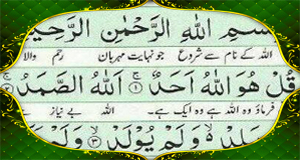 بِسْمِ اللهِ الرَّحْمٰنِ الرَّحِيْ
اللہ کے نام سے شروع جو نہایت مہربان رحم والا
قُلْ هُوَ اللهُ اَحَدٌ ۝۱ اَللهُ الصَّمَدُ ۝۲
فرماؤ وہ اللہ ہے وہ ایک ہے۔ اللہ بے نیاز
يَلِدْ وَلَمْ يُوْلَدْ ۝۳ وَلَمْ